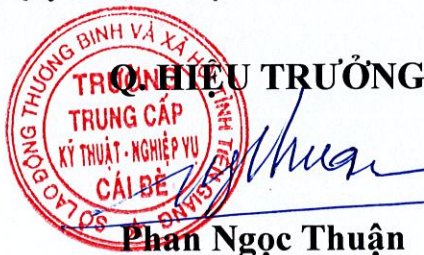 Q. HIỆU TRƯỞNG
SỞ LAO ĐỘNG THƯƠNG BINH VÀ XÃ HỘI TỈNH TIỀN GIANG
TRƯỜNG
TRUNG CẤP
KỸ THUẬT - NGHIỆP VỤ
CÁI BÈ
Phan Ngọc Thuận